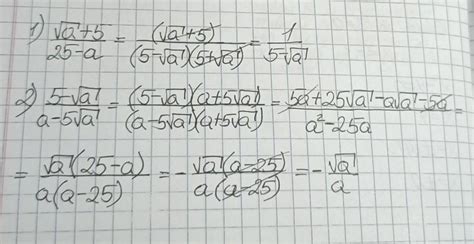 1) (√a+5)/(25-a) = (√a+5)/((5-√a)(5+√a)) = 1/(5-√a)
2) (5-√a)/(a-5√a) = ((5-√a)(a+5√a))/((a-5√a)(a+5√a)) = (5a+25√a-a√a-5a)/(a²-25a) =
= (√a(25-a))/(a(a-25)) = -(√a(a-25))/(a(a-25)) = -√a/a